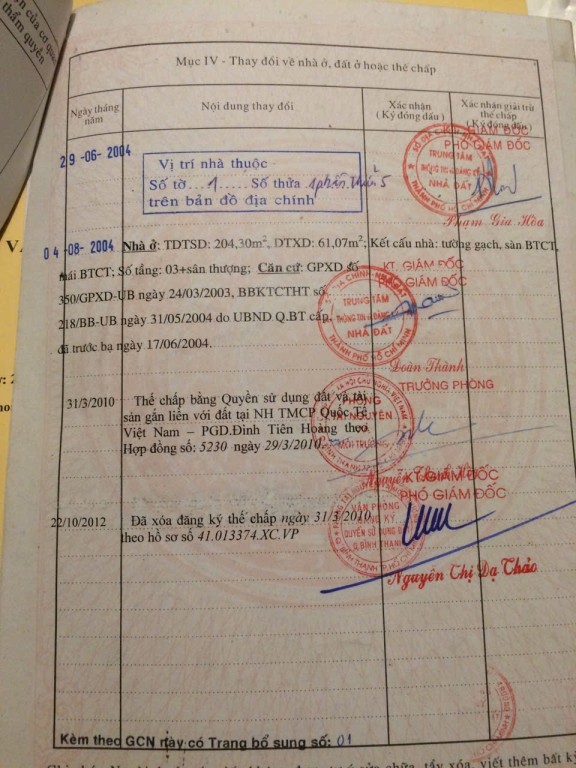 của cơ quan
thẩm quyền
Mục IV - Thay đổi về nhà ở, đất ở hoặc thế chấp
Ngày tháng năm
Nội dung thay đổi
Xác nhận
(Ký đóng dấu)
Xác nhận giải trừ
thế chấp
(Ký đóng dấu)
29-06-2004
Vị trí nhà thuộc
Số tờ ...1..... Số thửa 1phần thửa 5
trên bản đồ địa chính
KT. GIÁM ĐỐC
PHÓ GIÁM ĐỐC
TRUNG TÂM
NHÀ ĐẤT
THÀNH PHỐ HỒ CHÍ MINH
Phạm Gia Hòa
04-08-2004 Nhà ở: TDTSD: 204,30m², DTXD: 61,07m²; Kết cấu nhà: tường gạch, sàn BTCT,
mái BTCT; Số tầng: 03+sân thượng; Căn cứ: GPXD số
350/GPXD-UB ngày 24/03/2003, BBKTCTHT số
218/BB-UB ngày 31/05/2004 do UBND Q.BT cấp,
đã trước bạ ngày 17/06/2004.
KT. GIÁM ĐỐC
PHÓ GIÁM ĐỐC
TRUNG TÂM
NHÀ ĐẤT
THÀNH PHỐ HỒ CHÍ MINH
Đoàn Thành
31/3/2010 Thế chấp bằng Quyền sử dụng đất và tài
sản gắn liền với đất tại NH TMCP Quốc Tế
Việt Nam – PGD.Đinh Tiên Hoàng theo
Hợp đồng số: 5230 ngày 29/3/2010.
TRƯỞNG PHÒNG
PHÒNG
TÀI NGUYÊN
MÔI TRƯỜNG
KT.GIÁM ĐỐC
PHÓ GIÁM ĐỐC
22/10/2012 Đã xóa đăng ký thế chấp ngày 31/3/2010
theo hồ sơ số 41.013374.XC.VP
VĂN PHÒNG
ĐĂNG KÝ
QUYỀN SỬ DỤNG ĐẤT
Q.BÌNH THẠNH
Nguyễn Thị Dạ Thảo
Kèm theo GCN này có Trang bổ sung số: 01